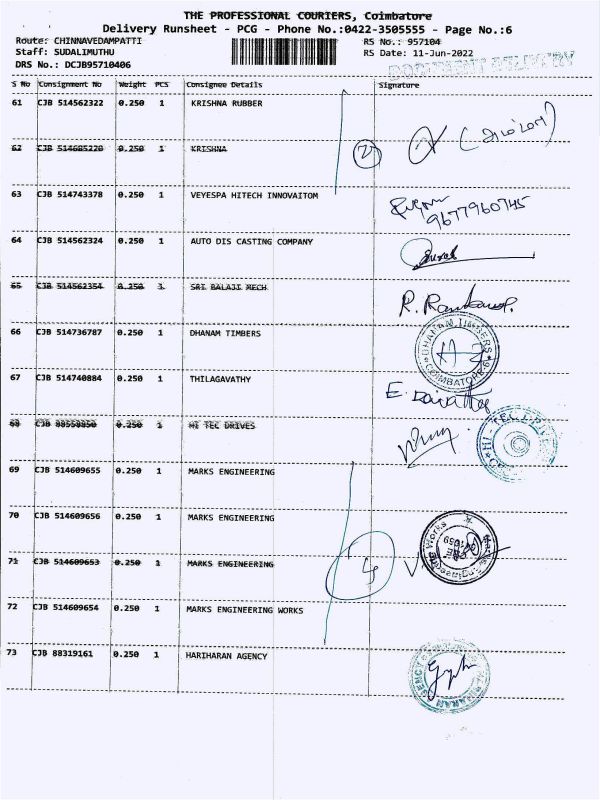 THE PROFESSIONAL COURIERS, Coimbatore
Delivery Runsheet - PCG - Phone No.:0422-3505555 - Page No.:6
Route: CHINNAVEDAMPATTI
RS No.: 957104
Staff: SUDALIMUTHU
RS Date: 11-Jun-2022
DRS No.: DCJB95710406
DOCUMENT DELIVERY
S No Consignment No Weight PCS Consignee Details Signature
61 CJB 514562322 0.250 1 KRISHNA RUBBER
2
62 CJB 514685220 0.250 1 KRISHNA
63 CJB 514743378 0.250 1 VEYESPA HITECH INNOVAITOM
9677960745
64 CJB 514562324 0.250 1 AUTO DIS CASTING COMPANY
65 CJB 514562354 0.250 1 SRI BALAJI MECH
66 CJB 514736787 0.250 1 DHANAM TIMBERS
DHANAM TIMBERS
COIMBATORE-6
67 CJB 514740884 0.250 1 THILAGAVATHY
68 CJB 88550850 0.250 1 HI TEC DRIVES
69 CJB 514609655 0.250 1 MARKS ENGINEERING
70 CJB 514609656 0.250 1 MARKS ENGINEERING
4
71 CJB 514609653 0.250 1 MARKS ENGINEERING
72 CJB 514609654 0.250 1 MARKS ENGINEERING WORKS
73 CJB 88319161 0.250 1 HARIHARAN AGENCY